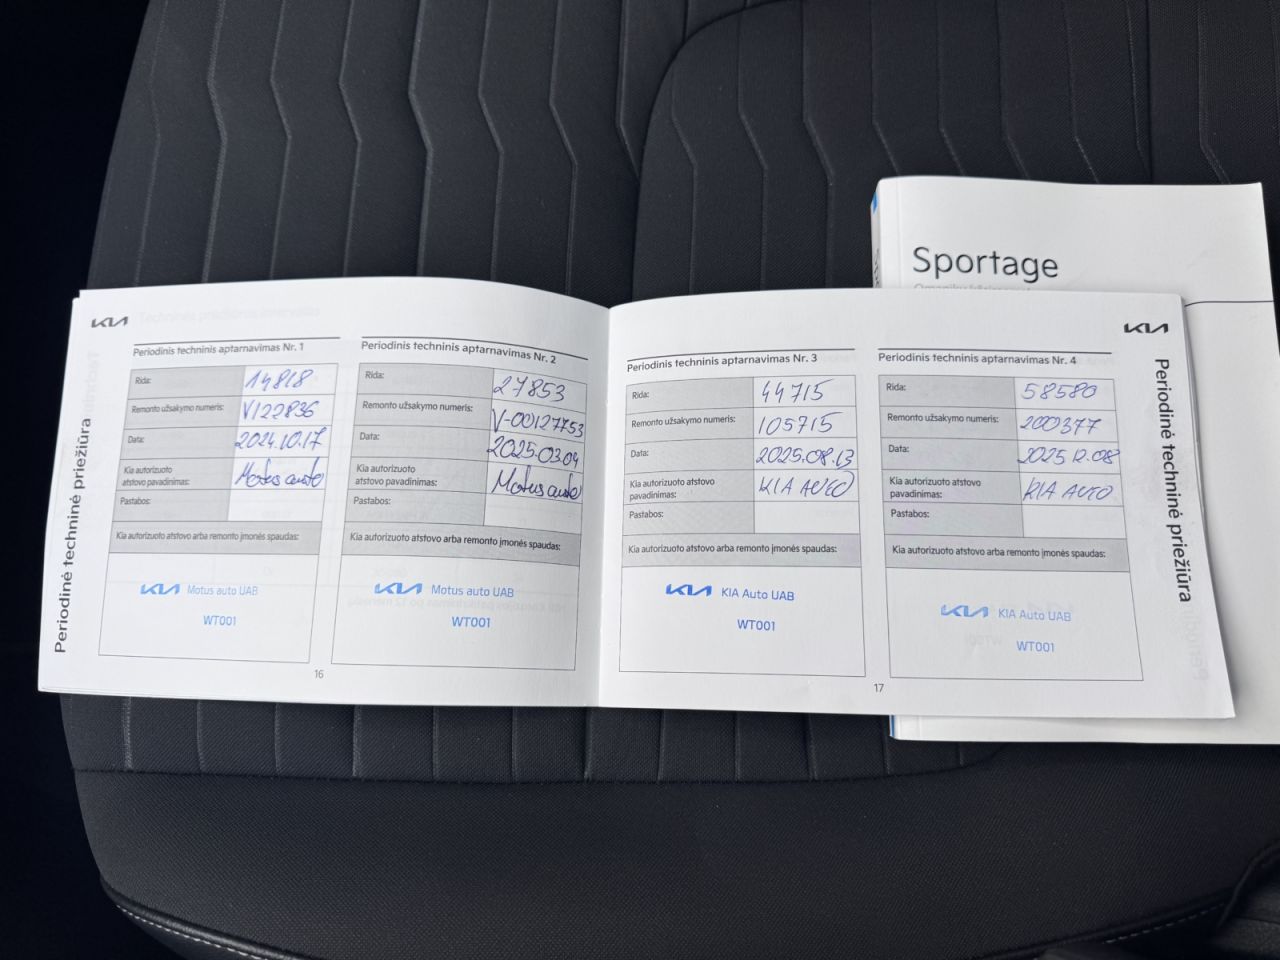 Sportage
KIA
Periodinė techninė priežiūra
Periodinis techninis aptarnavimas Nr. 1
Rida: 14818
Remonto užsakymo numeris: V122836
Data: 2024.10.17
Kia autorizuoto atstovo pavadinimas: Motus auto
Pastabos:
Kia autorizuoto atstovo arba remonto įmonės spaudas:
KIA Motus auto UAB
WT001
Periodinis techninis aptarnavimas Nr. 2
Rida: 27853
Remonto užsakymo numeris: V-00127753
Data: 2025.03.04
Kia autorizuoto atstovo pavadinimas: Motus auto
Pastabos:
Kia autorizuoto atstovo arba remonto įmonės spaudas:
KIA Motus auto UAB
WT001
16
Periodinis techninis aptarnavimas Nr. 3
Rida: 44715
Remonto užsakymo numeris: 105715
Data: 2025.08.13
Kia autorizuoto atstovo pavadinimas: KIA AUTO
Pastabos:
Kia autorizuoto atstovo arba remonto įmonės spaudas:
KIA KIA Auto UAB
WT001
KIA
Periodinis techninis aptarnavimas Nr. 4
Rida: 58580
Remonto užsakymo numeris: 200377
Data: 2025.12.08
Kia autorizuoto atstovo pavadinimas: KIA AUTO
Pastabos:
Kia autorizuoto atstovo arba remonto įmonės spaudas:
KIA KIA Auto UAB
WT001
17
Periodinė techninė priežiūra